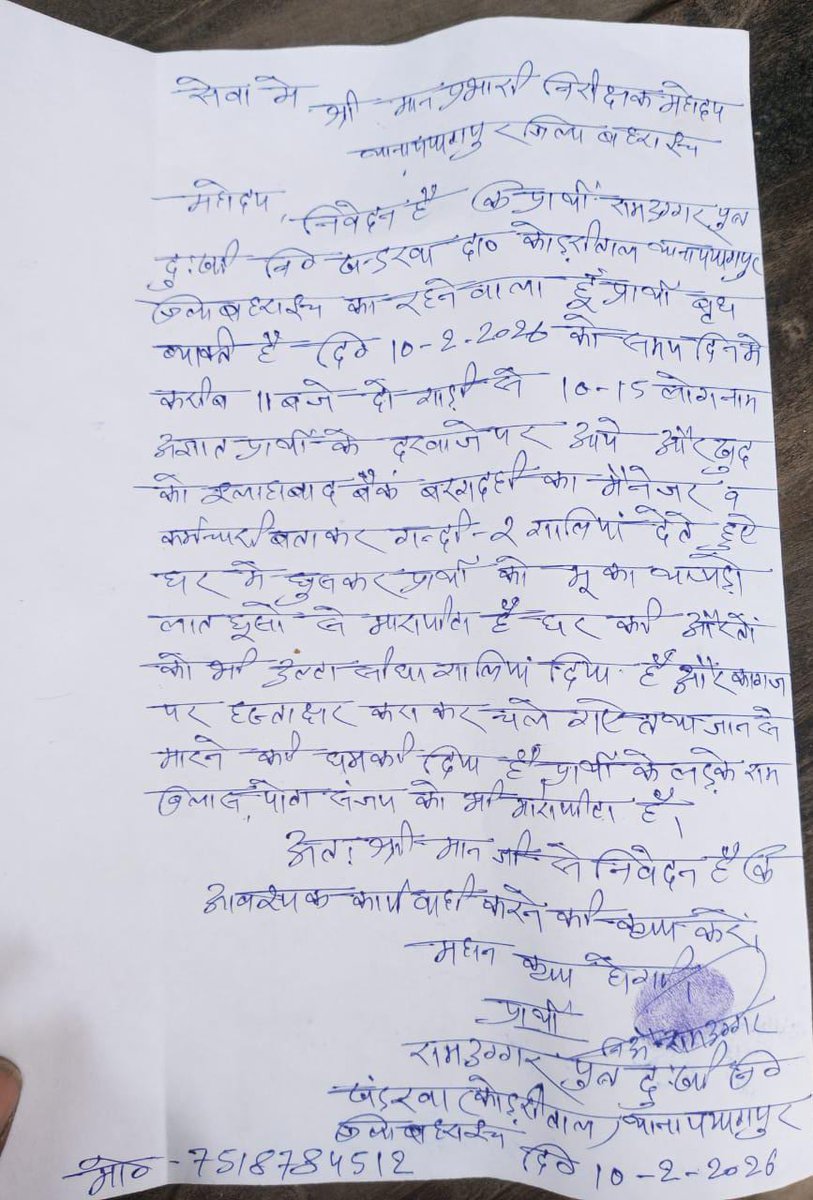 सेवा मे
श्री मान प्रभारी निरीक्षक महोदय
थाना पयागपुर जिला बहराइच
महोदय,
निवेदन है कि प्रार्थी रामउग्गर पुत्र
दुःखी नि० खन्डरवा दा० कोड़रीताल थाना पयागपुर
जिला बहराइच का रहने वाला हूँ प्रार्थी बृध
व्याक्ती है दि० 10-2-2026 को समय दिन मे
करीब 11 बजे दो गाड़ी से 10-15 लोग नाम
अज्ञात प्रार्थी के दरवाजे पर आये और खुद
को इलाहाबाद बैंक बरगदही का मैनेजर व
कर्मचारी बताकर गन्दी-२ गालियां देते हुऐ
घर मे घुसकर प्रार्थी को मूका थप्पड़ो
लात घूसो से मारापीटा है घर की औरतों
को भी उल्टा सीधा गालियां दिया है और कागज
पर हस्ताक्षर करा कर चले गऐ तथा जान से
मारने की धमकी दिया है प्रार्थी के लड़के राम
जिलास, पोता संजय को भी मारापीटा है।
अतः श्री मान जी से निवेदन है कि
आवश्यक कार्यवाही करने की कृपा करें,
महान कृपा होगी।
प्रार्थी
नि०अ० रामउग्गर
रामउग्गर पुत्र दुःखी नि०
खंडरवा (कोड़रीताल) थाना पयागपुर
जिला बहराइच
मो० - 7518784512 दि० 10-2-2026